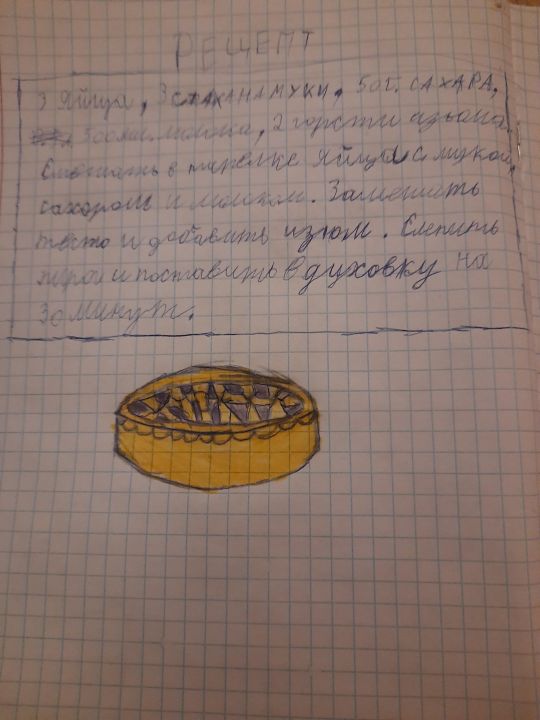 РЕЦЕПТ
3 яйца, 3 стакана муки, 50г. САХАРА,
500мл. молока, 2 горсти изюма.
Смешать в тарелке яйца с мукой,
сахаром и молоком. Замешить
тесто и добавить изюм. Слепить
пирог и поставить в духовку на
30 минут.